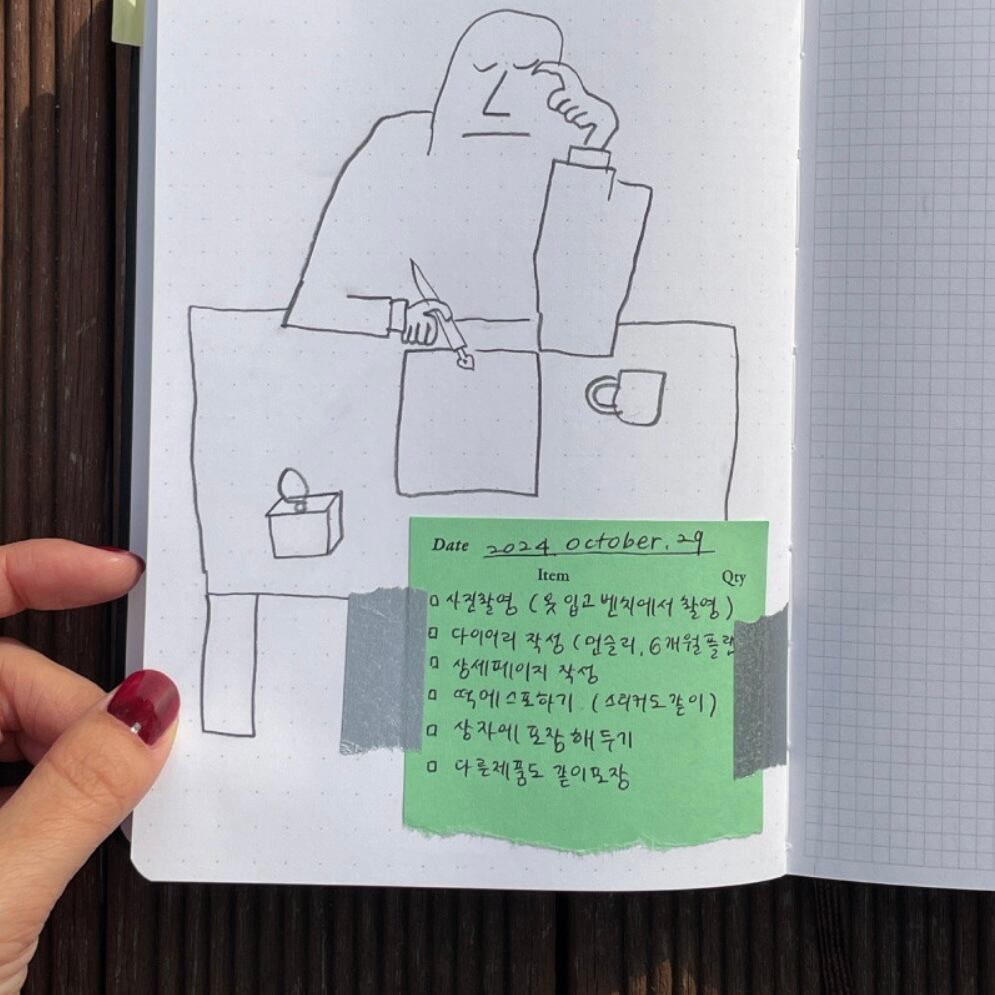 Date 2024 October. 29
Item Qty
□ 사진촬영 (옷 입고 벤치에서 촬영)
□ 다이어리 작성 (먼슬리, 6개월플랜
□ 상세페이지 작성
□ 떡에스포하기 (스티커도같이)
□ 상자에 포장해두기
□ 다른제품도 같이포장